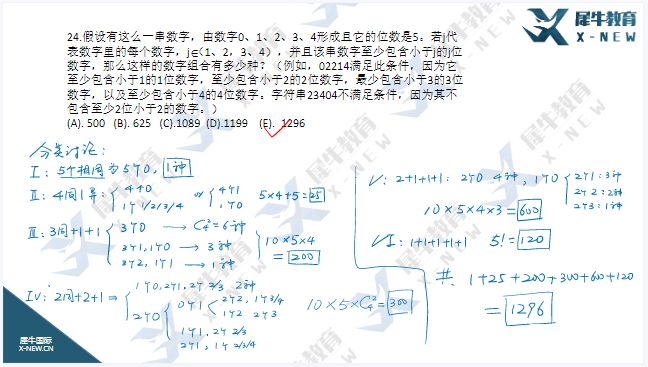 犀牛教育
X-NEW
24.假设有这么一串数字，由数字0、1、2、3、4形成且它的位数是5。若j代
表数字里的每个数字，j∈{1、2，3、4}，并且该串数字至少包含小于j的j位
数字，那么这样的数字组合有多少种？（例如，02214满足此条件，因为它
至少包含小于1的1位数字，至少包含小于2的2位数字，最少包含小于3的3位
数字，以及至少包含小于4的4位数字。字符串23404不满足条件，因为其不
包含至少2位小于2的数字。）
(A). 500 (B). 625 (C).1089 (D).1199 (E). 1296
分类讨论：
I：5个相同为5个0，1种
II：4同1异：4个0 1个1/2/3/4 or 4个1 1个0 5×4+5=25
III：3同+1+1 3个0 → C₄²=6种
3个1,1个0 → 3种
3个2,1个1 → 1种
10×5×4
=200
IV：2同+2+1 ⇒ 1个0,2个1,2个2/3 2种
2个0 0个1 2个2,1个3/4
1个2 2个3
1个1,2个2/3
2个1,1个2/3/4
10×5×C₄²=300
V：2+1+1+1：2个0 4种，1个0 2个1：3种
2个2：2种
2个3：1种
10×5×4×3=600
VI：1+1+1+1+1 5!=120
共 1+25+200+300+600+120
=1296
犀牛国际
X-NEW.CN